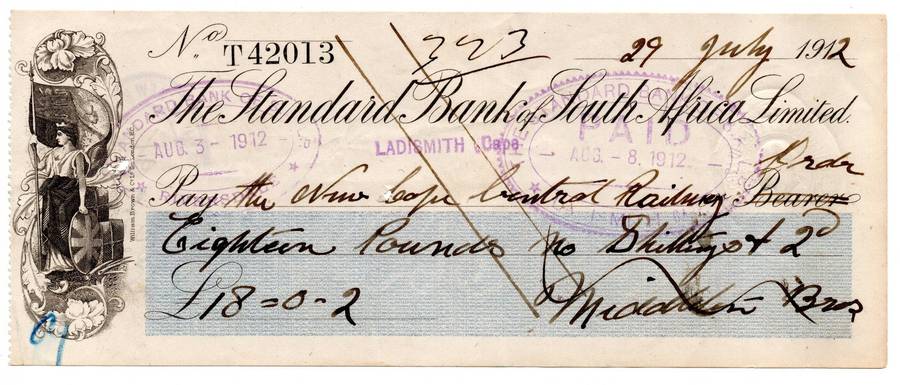 No T42013 323 29 July 1912
The Standard Bank of South Africa Limited.
STANDARD BANK
AUG. 3 - 1912
LADISMITH Cape
STANDARD BANK
PAID
AUG. - 8. 1912
Order
Pay the New Cape Central Railway Bearer
Eighteen Pounds no Shillings & 2d
£18-0-2
Bros